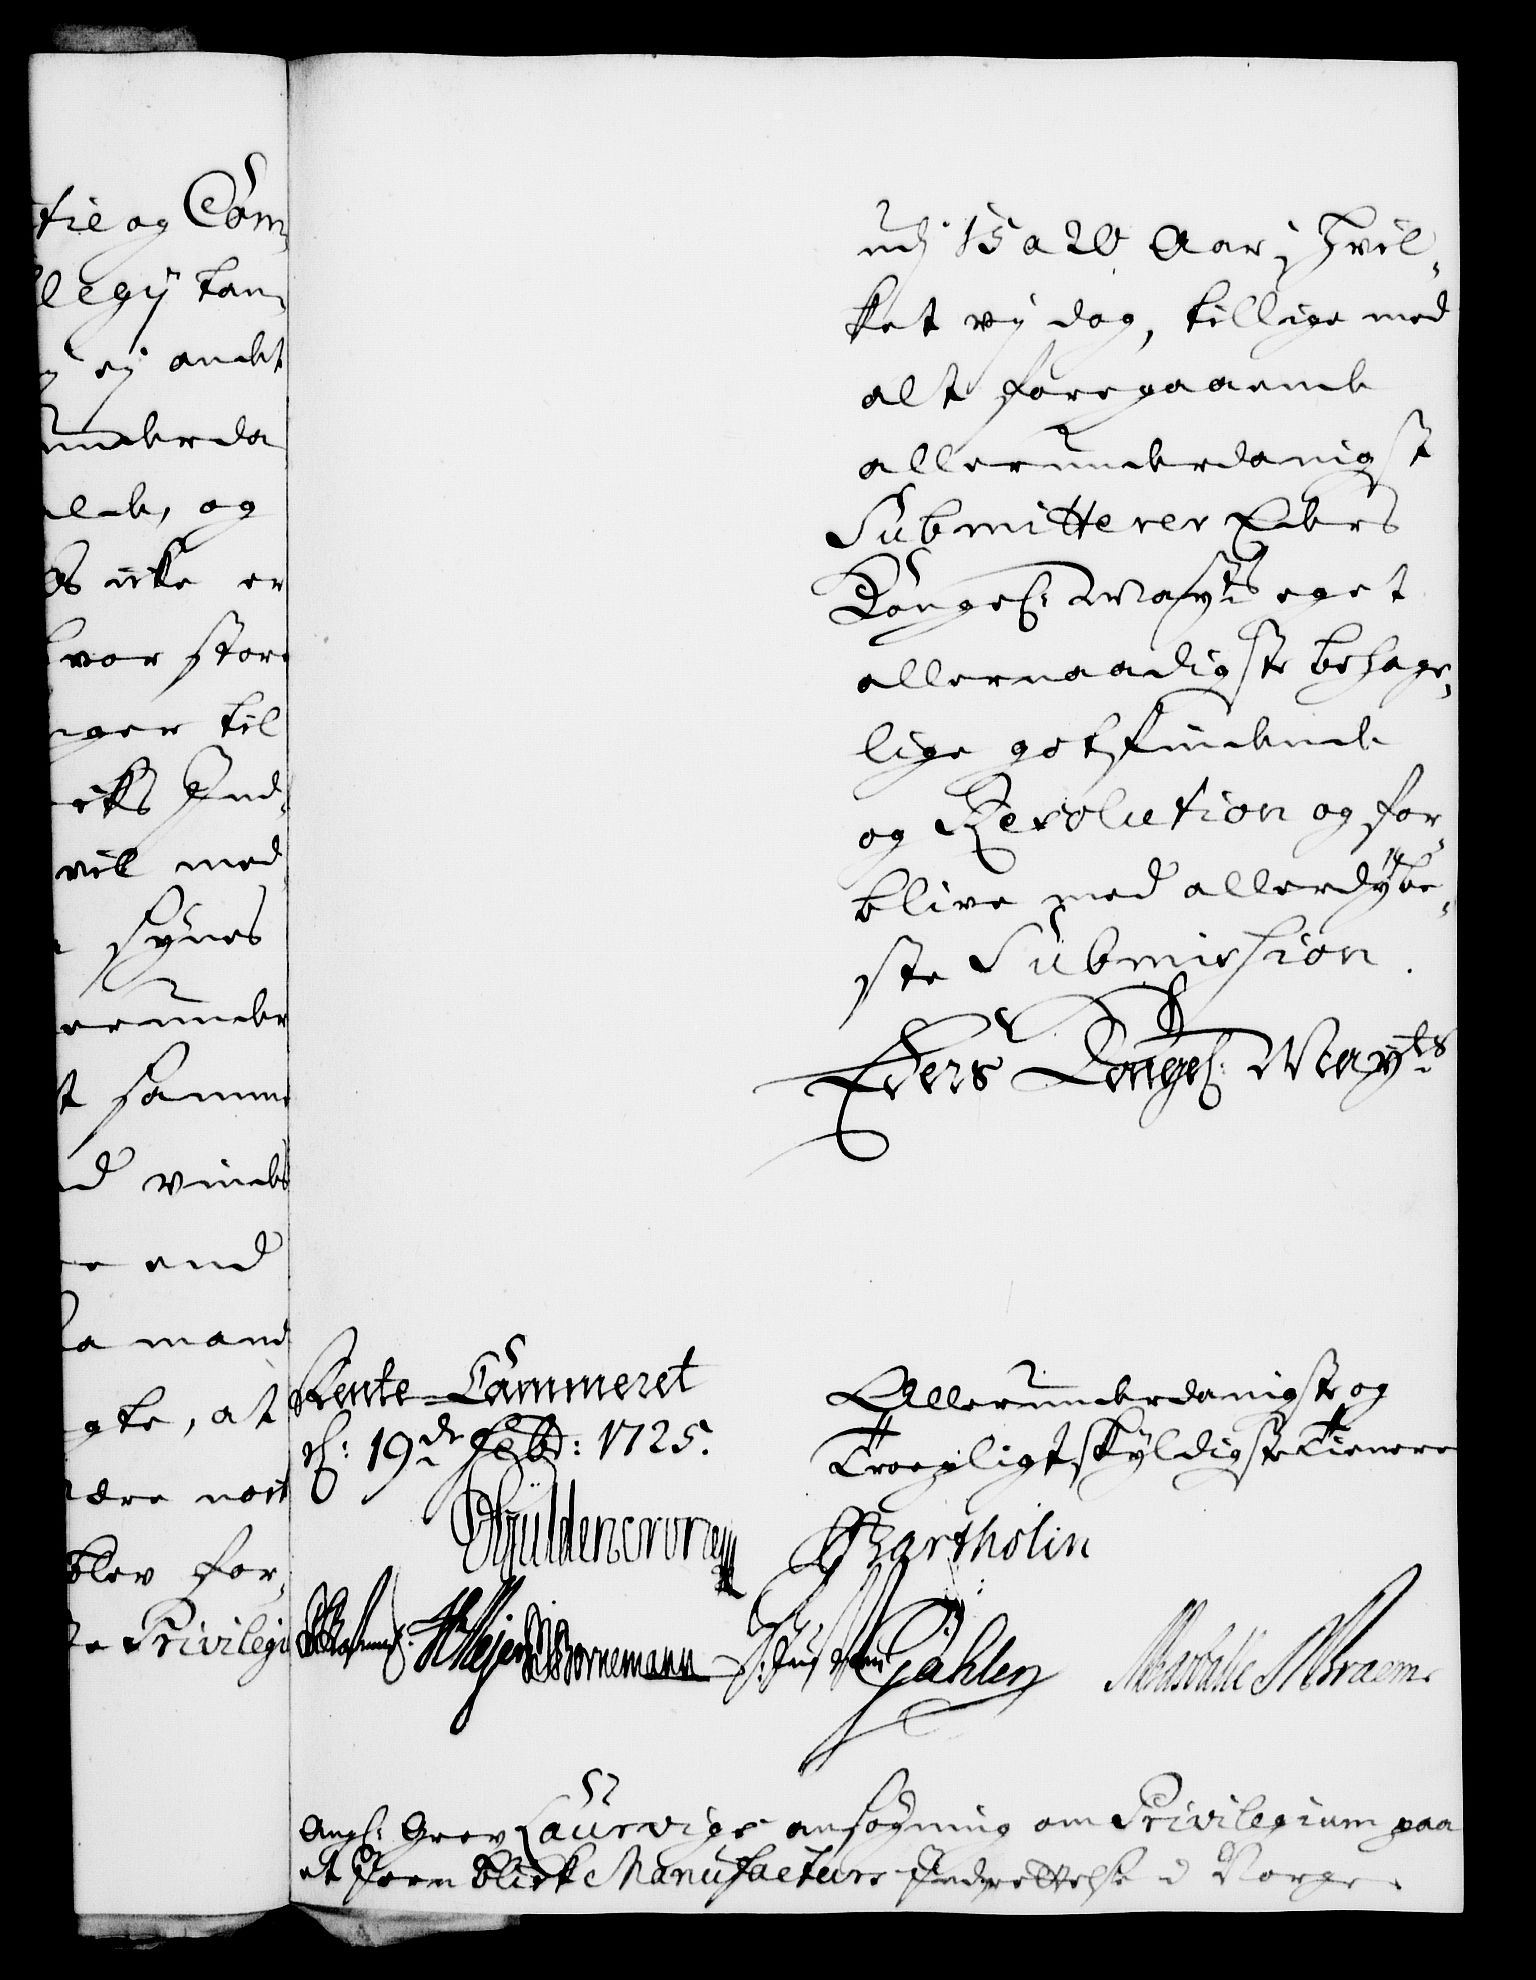 tie og Com-
legij kan-
ej andet
underda
lede, og
icke er
hvor stor
nger til
vil med
synes
erunder
t samme
d vindes
end
mand
gte, at
være nød
blev for-
te Privilegi
udj 15 a 20 Aar; Hvil-
ket vij dog, tillige med
alt foregaaende
allerunderdanigst
Submitterer Eders
Kongel: Mayts eget
allernaadigste behage-
lige gotfindende
og Resolution og for-
blive med allerdybe-
ste Submission.
Eders Kongel: Mayts
Rente-Cammeret
d: 19de Feb: 1725.
Allerunderdanigste og
Troepligtskyldigste Tienere
Güldencrone
Bartholin
Bornemann
Gählen
Braem
Angl: Grev Laurvigs ansøgning om Privilegium paa
et Jern Blick Manufacturs Indrettelse i Norge.